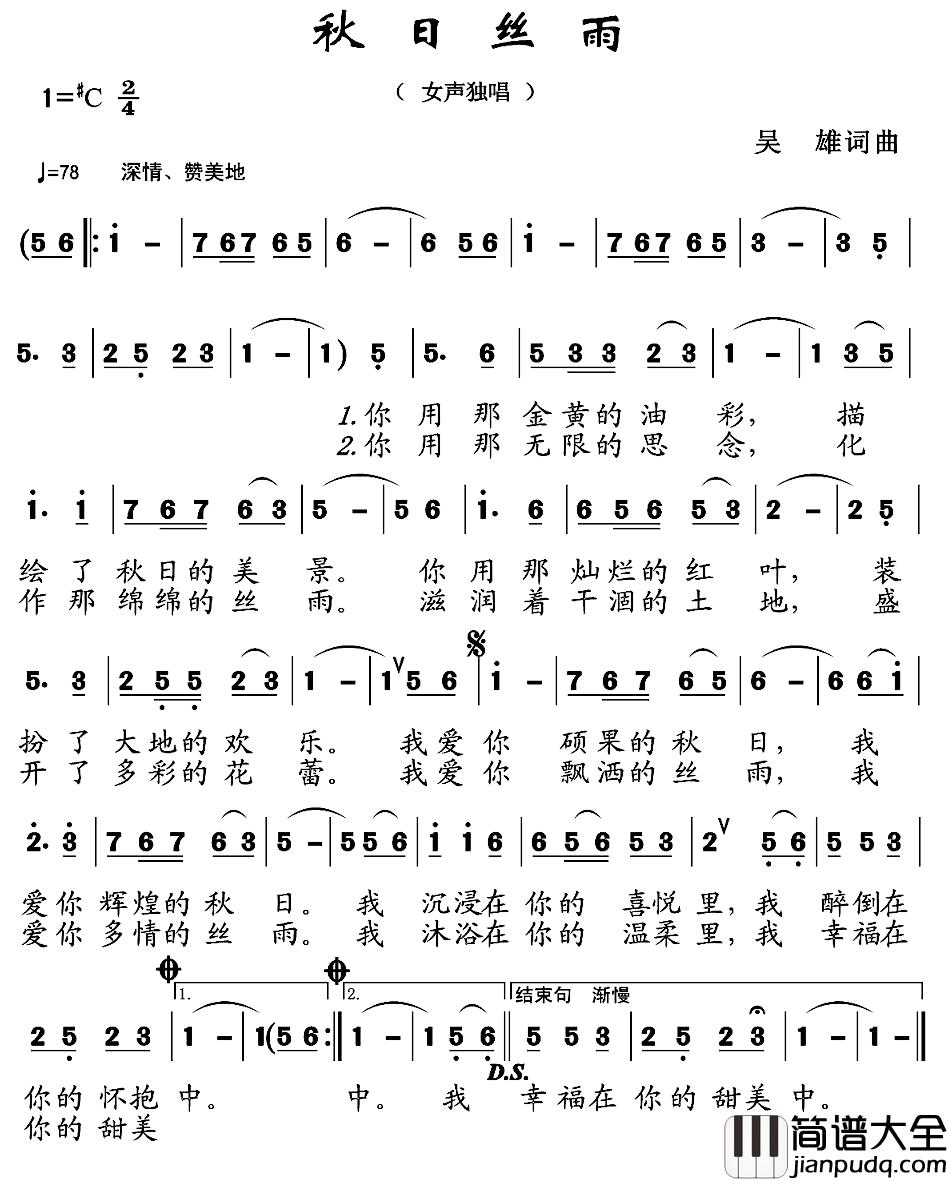 秋日丝雨
1=#C 2/4
（女声独唱）
吴 雄词曲
♩=78 深情、赞美地
(5 6 ‖: i - | 7 6 7 6 5 | 6 - | 6 5 6 | i - | 7 6 7 6 5 | 3 - | 3 5 |
5. 3 | 2 5 2 3 | 1 - | 1) 5 | 5. 6 | 5 3 3 2 3 | 1 - | 1 3 5 |
1.你 用 那 金黄的 油 彩, 描
2.你 用 那 无限的 思 念, 化
i. i | 7 6 7 6 3 | 5 - | 5 6 | i. 6 | 6 5 6 5 3 | 2 - | 2 5 |
绘 了 秋日的 美 景。 你 用 那 灿烂的 红 叶, 装
作 那 绵绵的 丝 雨。 滋 润 着 干涸的 土 地, 盛
5. 3 | 2 5 5 2 3 | 1 - | 1 ∨ 5 6 | i - | 7 6 7 6 5 | 6 - | 6 6 i |
扮 了 大地的 欢 乐。 我 爱 你 硕果的 秋 日, 我
开 了 多彩的 花 蕾。 我 爱 你 飘洒的 丝 雨, 我
2. 3 | 7 6 7 6 3 | 5 - | 5 5 6 | i i 6 | 6 5 6 5 3 | 2 ∨ 5 6 | 5 5 3 |
爱你 辉煌的 秋 日。 我 沉浸在 你的 喜悦 里, 我 醉倒在
爱你 多情的 丝 雨。 我 沐浴在 你的 温柔 里, 我 幸福在
1. 2. 结束句 渐慢
2 5 2 3 | 1 - | 1 (5 6 :‖ 1 - | 1 5 6 ‖ 5 5 3 | 2 5 2 3 | 1 - | 1 - ‖
D.S.
你的 怀抱 中。 中。 我 幸福在 你的 甜美 中。
你的 甜美
简谱大全
jianpudq.com